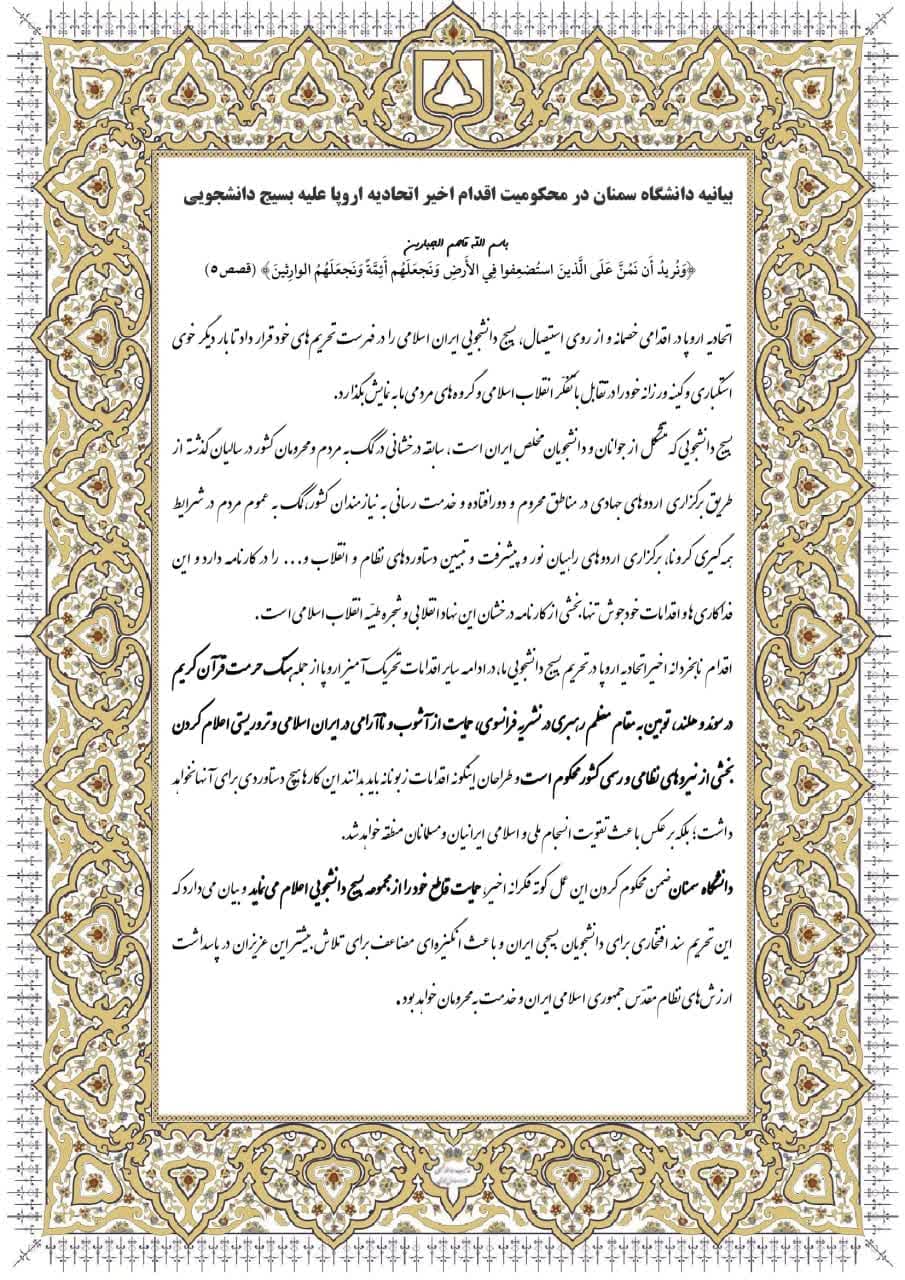 بیانیه دانشگاه سمنان در محکومیت اقدام اخیر اتحادیه اروپا علیه بسیج دانشجویی
باسم الله قاصم الجبارین
﴿وَنُريدُ أَن نَمُنَّ عَلَى الَّذينَ استُضعِفوا فِي الأَرضِ وَنَجعَلَهُم أَئِمَّةً وَنَجعَلَهُمُ الوارِثينَ﴾ (قصص۵)
اتحادیه اروپا در اقدامی خصمانه و از روی استیصال، بسیج دانشجویی ایران اسلامی را در فهرست تحریم های خود قرار داد تا بار دیگر خوی
استکباری و کینه ورزانه خود را در تقابل با تفکّر انقلاب اسلامی و گروه های مردمی ما به نمایش بگذارد.
بسیج دانشجویی که متشکل از جوانان و دانشجویان مخلص ایران است، سابقه درخشانی در کمک به مردم و محرومان کشور در سالیان گذشته از
طریق برگزاری اردوهای جهادی در مناطق محروم و دورافتاده و خدمت رسانی به نیازمندان کشور، کمک به عموم مردم در شرایط
همه گیری کرونا، برگزاری اردوهای راهیان نور و پیشرفت و تبیین دستاوردهای نظام و انقلاب و... را در کارنامه دارد و این
فداکاری ها و اقدامات خودجوش تنها بخشی از کارنامه درخشان این نهاد انقلابی و شجره طیّبه انقلاب اسلامی است.
اقدام نابخردانه اخیر اتحادیه اروپا در تحریم بسیج دانشجویی ما، در ادامه سایر اقدامات تحریک آمیز اروپا از جمله هتک حرمت قرآن کریم
در سوئد و هلند، توهین به مقام معظم رهبری در نشریه فرانسوی، حمایت از آشوب و ناآرامی در ایران اسلامی و تروریستی اعلام کردن
بخشی از نیروهای نظامی و رسمی کشور محکوم است و طراحان اینگونه اقدامات زبونانه باید بدانند این کارها هیچ دستاوردی برای آنها نخواهد
داشت؛ بلکه برعکس باعث تقویت انسجام ملی و اسلامی ایرانیان و مسلمانان منطقه خواهد شد.
دانشگاه سمنان ضمن محکوم کردن این عمل کوته فکرانه اخیر، حمایت قاطع خود را از مجموعه بسیج دانشجویی اعلام می نماید و بیان می دارد که
این تحریم سند افتخاری برای دانشجویان بسیجی ایران و باعث انگیزه‌ای مضاعف برای تلاش بیشتر این عزیزان در پاسداشت
ارزش های نظام مقدّس جمهوری اسلامی ایران و خدمت به محرومان خواهد بود.